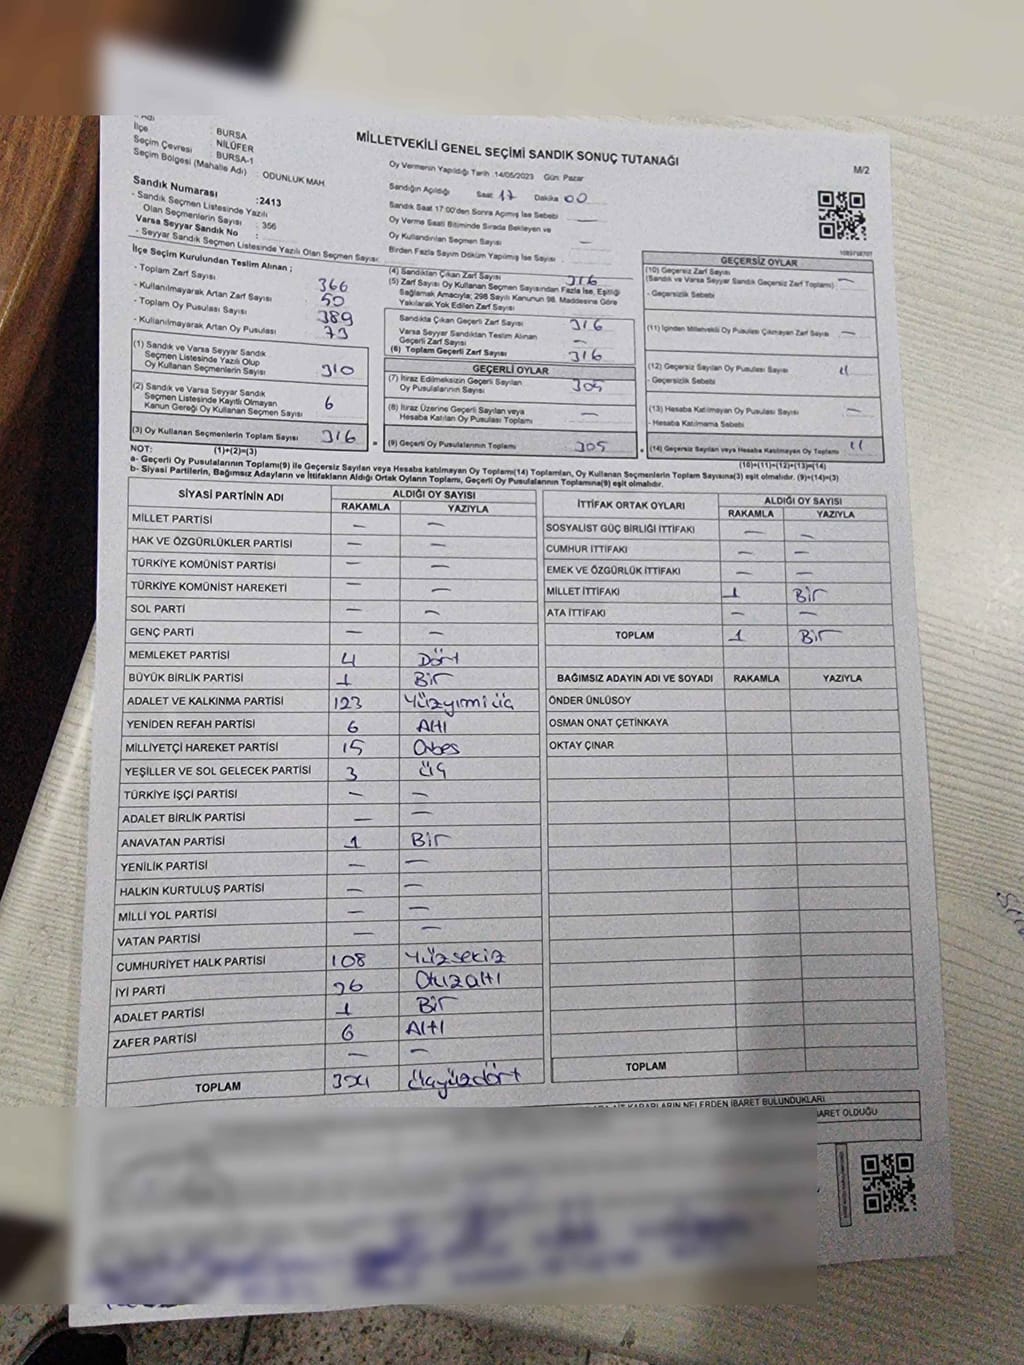 İlçe : BURSA
Seçim Çevresi : NİLÜFER
Seçim Bölgesi (Mahalle Adı) : BURSA-1
: ODUNLUK MAH.
MİLLETVEKİLİ GENEL SEÇİMİ SANDIK SONUÇ TUTANAĞI
M/2
Oy Vermenin Yapıldığı Tarih :14/05/2023 Gün: Pazar
Sandığın Açıldığı Saat 17 Dakika 00
Sandık Saat 17:00'den Sonra Açılmış İse Sebebi
Oy Verme Saati Bitiminde Sırada Bekleyen ve
Oy Kullandırılan Seçmen Sayısı —
Birden Fazla Sayım Döküm Yapılmış İse Sayısı
Sandık Numarası :2413
- Sandık Seçmen Listesinde Yazılı
Olan Seçmenlerin Sayısı : 356
Varsa Seyyar Sandık No :
- Seyyar Sandık Seçmen Listesinde Yazılı Olan Seçmen Sayısı:
İlçe Seçim Kurulundan Teslim Alınan ;
- Toplam Zarf Sayısı 366
- Kullanılmayarak Artan Zarf Sayısı 50
- Toplam Oy Pusulası Sayısı 389
- Kullanılmayarak Artan Oy Pusulası 73
(1) Sandık ve Varsa Seyyar Sandık
Seçmen Listesinde Yazılı Olup
Oy Kullanan Seçmenlerin Sayısı 310
(2) Sandık ve Varsa Seyyar Sandık
Seçmen Listesinde Kayıtlı Olmayan
Kanun Gereği Oy Kullanan Seçmen Sayısı 6
(3) Oy Kullanan Seçmenlerin Toplam Sayısı 316
(4) Sandıktan Çıkan Zarf Sayısı 316
(5) Zarf Sayısı Oy Kullanan Seçmen Sayısından Fazla İse, Eşitliği
Sağlamak Amacıyla; 298 Sayılı Kanunun 98. Maddesine Göre
Yakılarak Yok Edilen Zarf Sayısı
Sandıkta Çıkan Geçerli Zarf Sayısı 316
Varsa Seyyar Sandıktan Teslim Alınan
Geçerli Zarf Sayısı —
(6) Toplam Geçerli Zarf Sayısı 316
GEÇERLİ OYLAR
(7) İtiraz Edilmeksizin Geçerli Sayılan
Oy Pusulalarının Sayısı 305
(8) İtiraz Üzerine Geçerli Sayılan veya
Hesaba Katılan Oy Pusulası Toplamı —
(9) Geçerli Oy Pusulalarının Toplamı 305
GEÇERSİZ OYLAR
(10) Geçersiz Zarf Sayısı
(Sandık ve Varsa Seyyar Sandık Geçersiz Zarf Toplamı) —
- Geçersizlik Sebebi
(11) İçinden Milletvekili Oy Pusulası Çıkmayan Zarf Sayısı —
(12) Geçersiz Sayılan Oy Pusulası Sayısı 11
- Geçersizlik Sebebi
(13) Hesaba Katılmayan Oy Pusulası Sayısı —
- Hesaba Katılmama Sebebi
(14) Geçersiz Sayılan veya Hesaba Katılmayan Oy Toplamı 11
NOT: (1)+(2)=(3)
(10)+(11)+(12)+(13)=(14)
a- Geçerli Oy Pusulalarının Toplamı(9) ile Geçersiz Sayılan veya Hesaba katılmayan Oy Toplamı(14) Toplamları, Oy Kullanan Seçmenlerin Toplam Sayısına(3) eşit olmalıdır. (9)+(14)=(3)
b- Siyasi Partilerin, Bağımsız Adayların ve İttifakların Aldığı Ortak Oyların Toplamı, Geçerli Oy Pusulalarının Toplamına(9) eşit olmalıdır.
SİYASİ PARTİNİN ADI ALDIĞI OY SAYISI
RAKAMLA YAZIYLA
MİLLET PARTİSİ — —
HAK VE ÖZGÜRLÜKLER PARTİSİ — —
TÜRKİYE KOMÜNİST PARTİSİ — —
TÜRKİYE KOMÜNİST HAREKETİ — —
SOL PARTİ — —
GENÇ PARTİ — —
MEMLEKET PARTİSİ 4 Dört
BÜYÜK BİRLİK PARTİSİ 1 Bir
ADALET VE KALKINMA PARTİSİ 123 Yüzyirmi üç
YENİDEN REFAH PARTİSİ 6 Altı
MİLLİYETÇİ HAREKET PARTİSİ 15 Onbeş
YEŞİLLER VE SOL GELECEK PARTİSİ 3 üç
TÜRKİYE İŞÇİ PARTİSİ — —
ADALET BİRLİK PARTİSİ — —
ANAVATAN PARTİSİ 1 Bir
YENİLİK PARTİSİ — —
HALKIN KURTULUŞ PARTİSİ — —
MİLLİ YOL PARTİSİ — —
VATAN PARTİSİ — —
CUMHURİYET HALK PARTİSİ 108 Yüzsekiz
İYİ PARTİ 36 Otuzaltı
ADALET PARTİSİ 1 Bir
ZAFER PARTİSİ 6 Altı
— —
TOPLAM 304 Üçyüzdört
İTTİFAK ORTAK OYLARI ALDIĞI OY SAYISI
RAKAMLA YAZIYLA
SOSYALİST GÜÇ BİRLİĞİ İTTİFAKI — —
CUMHUR İTTİFAKI — —
EMEK VE ÖZGÜRLÜK İTTİFAKI — —
MİLLET İTTİFAKI 1 Bir
ATA İTTİFAKI — —
TOPLAM 1 Bir
BAĞIMSIZ ADAYIN ADI VE SOYADI RAKAMLA YAZIYLA
ÖNDER ÜNLÜSOY
OSMAN ONAT ÇETİNKAYA
OKTAY ÇINAR
TOPLAM
KARARLARIN NELERDEN İBARET BULUNDUKLARI
OLDUĞU